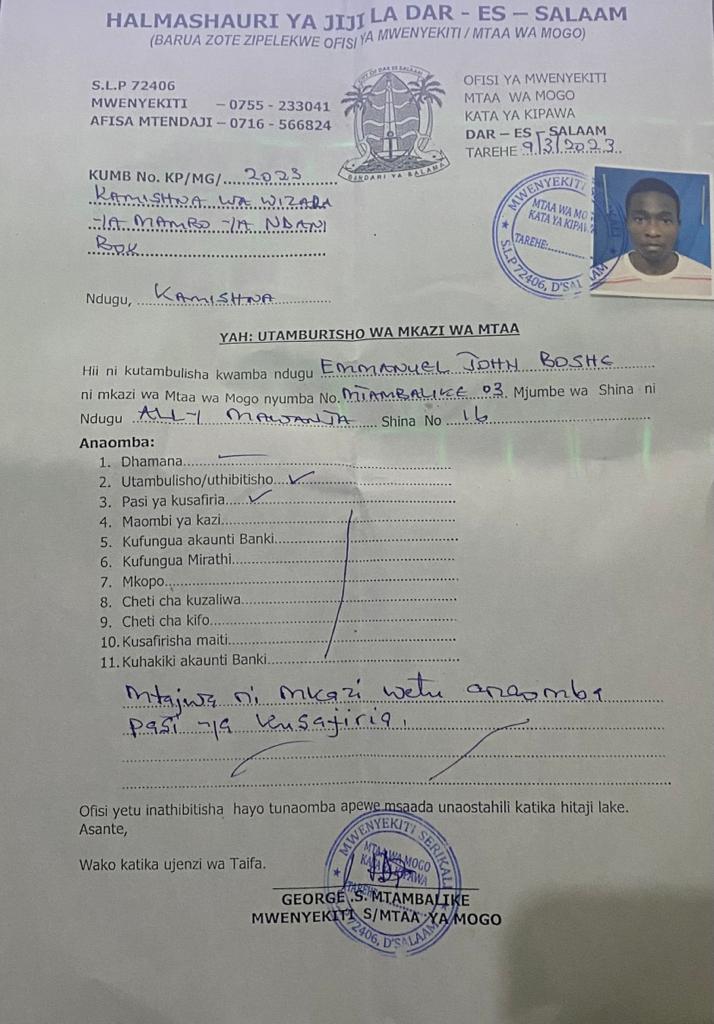 HALMASHAURI YA JIJI LA DAR - ES – SALAAM
(BARUA ZOTE ZIPELEKWE OFISI YA MWENYEKITI / MTAA WA MOGO)
S.L.P 72406
MWENYEKITI – 0755 - 233041
AFISA MTENDAJI – 0716 - 566824
CITY OF DAR ES SALAAM
BANDARI YA SALAMA
OFISI YA MWENYEKITI
MTAA WA MOGO
KATA YA KIPAWA
DAR – ES – SALAAM
TAREHE 9/3/2023
KUMB No. KP/MG/ 2023
KAMISHNA WA WIZARA
YA MAMBO YA NDANI
MWENYEKITI
MTAA WA MO
KATA YA KIPAW
TAREHE:
S.L.P 72406, D'SALAAM
Ndugu, KAMISHNA
YAH: UTAMBURISHO WA MKAZI WA MTAA
Hii ni kutambulisha kwamba ndugu EMMANUEL JOHN BOSHE
ni mkazi wa Mtaa wa Mogo nyumba No. MTAMBALIKE 03. Mjumbe wa Shina ni
Ndugu ALLY MAWANJA Shina No 16
Anaomba:
1. Dhamana
2. Utambulisho/uthibitisho ✓
3. Pasi ya kusafiria ✓
4. Maombi ya kazi
5. Kufungua akaunti Banki
6. Kufungua Mirathi
7. Mkopo
8. Cheti cha kuzaliwa
9. Cheti cha kifo
10. Kusafirisha maiti
11. Kuhakiki akaunti Banki
Mtajwa ni mkazi wetu anaomba
pasi ya kusafiria.
Ofisi yetu inathibitisha hayo tunaomba apewe msaada unaostahili katika hitaji lake.
Asante,
Wako katika ujenzi wa Taifa.
MWENYEKITI SERIKALI
MTAA WA MOGO
KATA KIPAWA
TAREHE
72406, D'SALAAM
GEORGE .S. MTAMBALIKE
MWENYEKITI S/MTAA YA MOGO